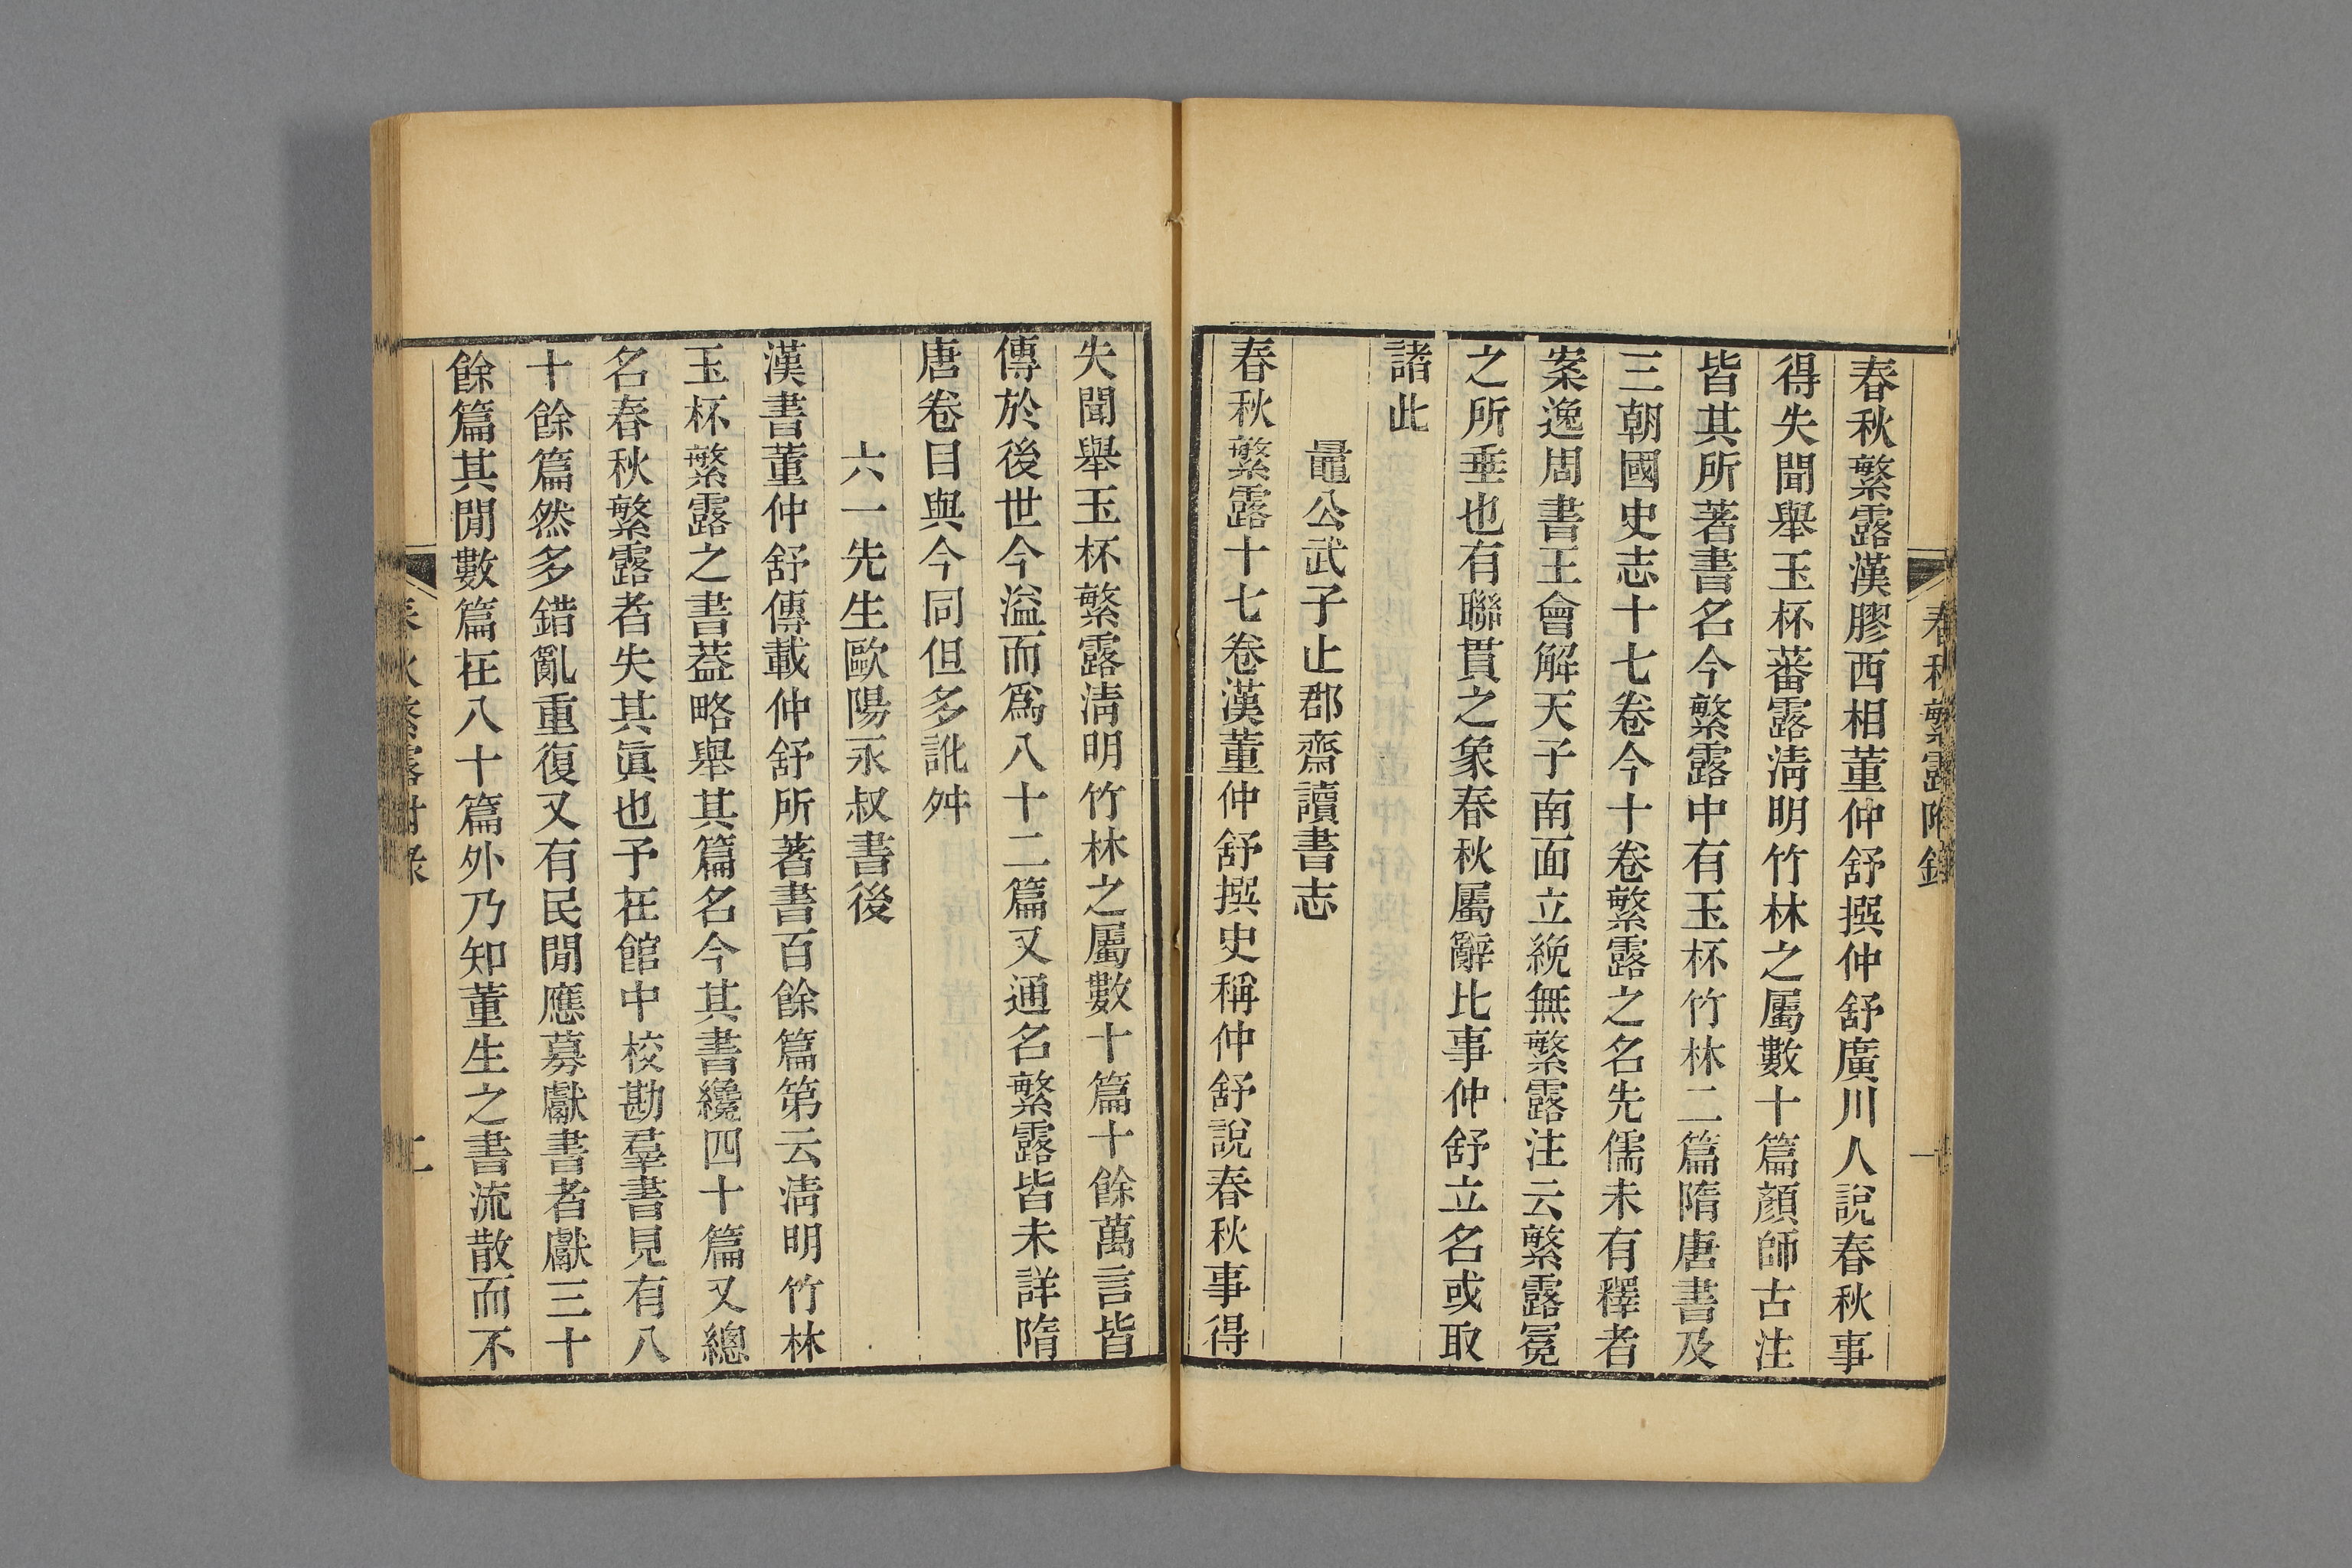 春秋繁露附錄
一
春秋繁露漢膠西相董仲舒撰仲舒廣川人說春秋事
得失聞舉玉杯蕃露淸明竹林之屬數十篇顏師古注
皆其所著書名今繁露中有玉杯竹林二篇隋唐書及
三朝國史志十七卷今十卷繁露之名先儒未有釋者
案逸周書王會解天子南面立絻無繁露注云繁露冕
之所垂也有聯貫之象春秋屬辭比事仲舒立名或取
諸此
鼂公武子止郡齋讀書志
春秋繁露十七卷漢董仲舒撰史稱仲舒說春秋事得
失聞舉玉杯繁露淸明竹林之屬數十篇十餘萬言皆
傳於後世今溢而爲八十二篇又通名繁露皆未詳隋
唐卷目與今同但多訛舛
六一先生歐陽永叔書後
漢書董仲舒傳載仲舒所著書百餘篇第云淸明竹林
玉杯繁露之書葢略舉其篇名今其書纔四十篇又總
名春秋繁露者失其眞也予在館中校勘羣書見有八
十餘篇然多錯亂重復又有民閒應募獻書者獻三十
餘篇其閒數篇在八十篇外乃知董生之書流散而不
春秋繁露附錄
二